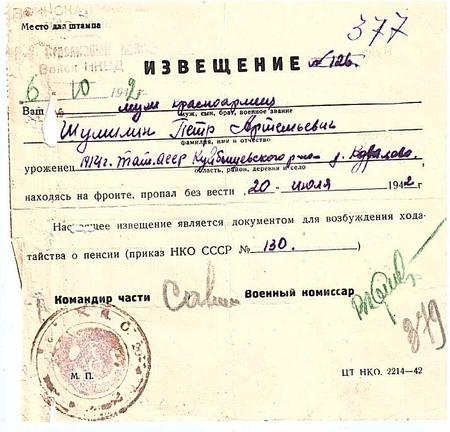 Место для штампа
377
Войск НКВД
ИЗВЕЩЕНИЕ № 126.
6 10 1942
Ваш муж красноармеец
муж, сын, брат, военное звание
Шумилин Петр Артемьевич
фамилия, имя и отчество
уроженец 1912 г. Тат. АССР Куйбышевского р-на д.
область, район, деревня и село
находясь на фронте, пропал без вести 20 июля 1942 г
Настоящее извещение является документом для возбуждения хода-
тайства о пенсии (приказ НКО СССР № 130.)
Командир части Военный комиссар
379
М. П.
ЦТ НКО. 2214—42